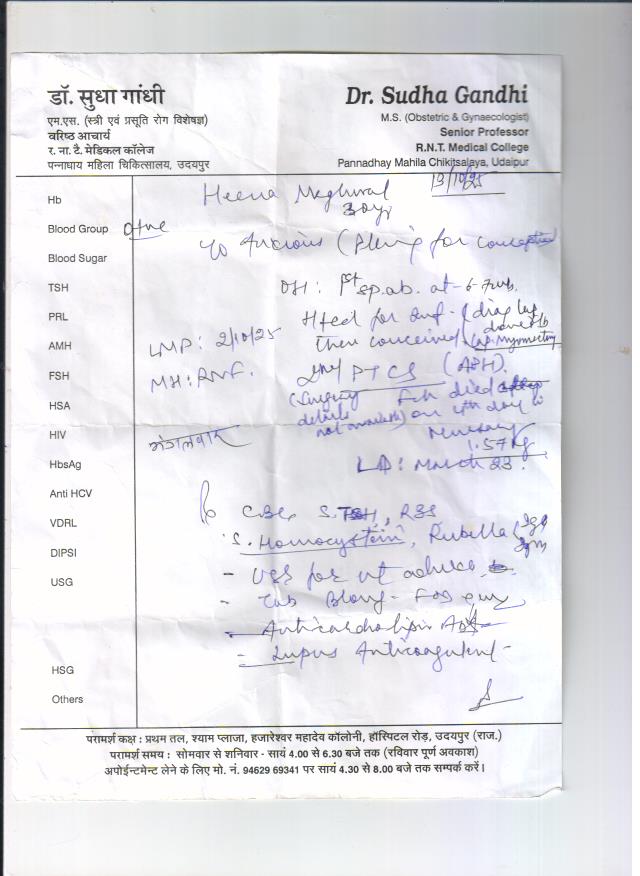 डॉ. सुधा गांधी
एम.एस. (स्त्री एवं प्रसूति रोग विशेषज्ञ)
वरिष्ठ आचार्य
र. ना. टै. मेडिकल कॉलेज
पन्नाधाय महिला चिकित्सालय, उदयपुर
Dr. Sudha Gandhi
M.S. (Obstetric & Gynaecologist)
Senior Professor
R.N.T. Medical College
Pannadhay Mahila Chikitsalaya, Udaipur
19/10/25
Hb
Heena Meghwal
30yr
Blood Group O+ve
Anxious ( for conception
Blood Sugar
TSH
OH: 1st sp.ab. at 6-7wk.
PRL
for inf - (diag lap
done
AMH
LMP: 2/10/25
then conceived. Lap. Myomectomy
FSH
MH: RNF.
2nd PTCS (APH).
HSA
(Surgery Fch died
details on 4th day in
not available)
HIV
मंगलवार
Nursery
1.57kg
HbsAg
LD: March 23.
Anti HCV
CBC, S.TSH, RBS
VDRL
S. Homocystein, Rubella IgG
IgM
DIPSI
USG
- USG for ut
- Tab
- Anticardiolipin
- Lupus Anticoagulant -
HSG
Others
परामर्श कक्ष : प्रथम तल, श्याम प्लाजा, हजारेश्वर महादेव कॉलोनी, हॉस्पिटल रोड़, उदयपुर (राज.)
परामर्श समय : सोमवार से शनिवार - सायं 4.00 से 6.30 बजे तक (रविवार पूर्ण अवकाश)
अपोईन्टमेन्ट लेने के लिए मो. नं. 94629 69341 पर सायं 4.30 से 8.00 बजे तक सम्पर्क करें।